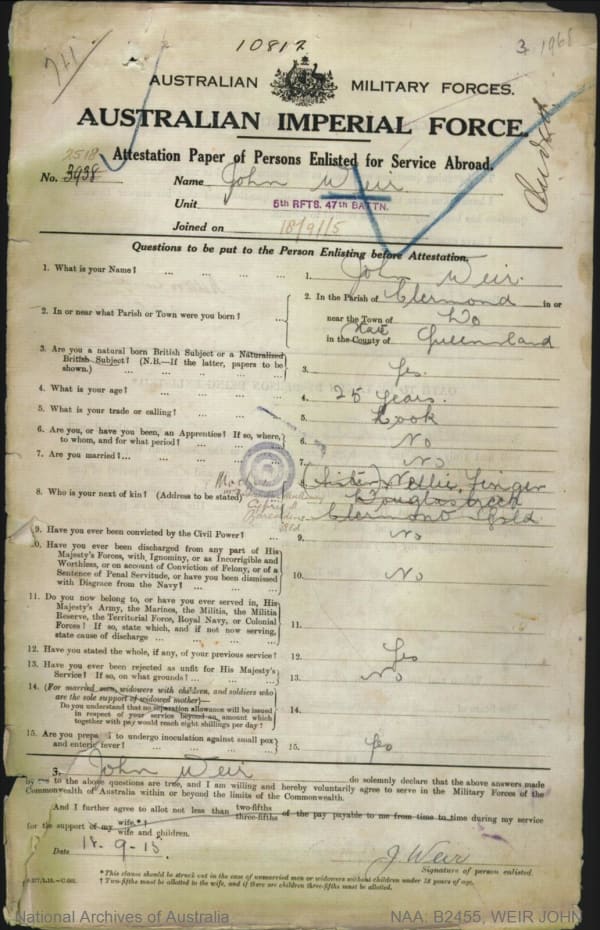 711
10812
3 1968
AUSTRALIAN MILITARY FORCES.
AUSTRALIAN IMPERIAL FORCE.
Attestation Paper of Persons Enlisted for Service Abroad.
2518
No. 3938 Name John Weir
Unit 5th RFTS. 47th BATTN.
Joined on 18/9/15
Questions to be put to the Person Enlisting before Attestation.
1. What is your Name? ... ... ... ... 1. John Weir.
2. In or near what Parish or Town were you born? ... 2. In the Parish of Clermond in or
near the Town of Do
in the County of State Queensland
3. Are you a natural born British Subject or a Naturalized
British Subject? (N.B.—If the latter, papers to be
shown.) ... ... ... ... 3. Yes.
4. What is your age? ... ... ... ... 4. 25 years.
5. What is your trade or calling? ... ... ... 5. Cook
6. Are you, or have you been, an Apprentice? If so, where,
to whom, and for what period? ... ... ... 6. No
7. Are you married? ... ... ... ... 7. No
8. Who is your next of kin? (Address to be stated) (Sister) Nellie Finger
Douglas creek
Clermond Qld
9. Have you ever been convicted by the Civil Power? ... 9. No
10. Have you ever been discharged from any part of His
Majesty's Forces, with Ignominy, or as Incorrigible and
Worthless, or on account of Conviction of Felony, or of a
Sentence of Penal Servitude, or have you been dismissed
with Disgrace from the Navy? ... ... ... 10. No
11. Do you now belong to, or have you ever served in, His
Majesty's Army, the Marines, the Militia, the Militia
Reserve, the Territorial Force, Royal Navy, or Colonial
Forces? If so, state which, and if not now serving,
state cause of discharge ... ... ... 11.
12. Have you stated the whole, if any, of your previous service? 12. Yes
13. Have you ever been rejected as unfit for His Majesty's
Service? If so, on what grounds? ... ... ... 13. No
14. (For married men, widowers with children, and soldiers who
are the sole support of widowed mother)—
Do you understand that no separation allowance will be issued
in respect of your service beyond an amount which
together with pay would reach eight shillings per day? 14.
15. Are you prepared to undergo inoculation against small pox
and enteric fever? ... ... ... ... 15. Yes
3. John Weir do solemnly declare that the above answers made
by me to the above questions are true, and I am willing and hereby voluntarily agree to serve in the Military Forces of the
Commonwealth of Australia within or beyond the limits of the Commonwealth.
And I further agree to allot not less than two-fifths three-fifths of the pay payable to me from time to time during my service
for the support of my wife.*† wife and children.
Date 18-9-15.
J Weir
Signature of person enlisted.
*This clause should be struck out in the case of unmarried men or widowers without children under 18 years of age.
† Two-fifths must be allotted to the wife, and if there are children three-fifths must be allotted.
National Archives of Australia NAA: B2455, WEIR JOHN